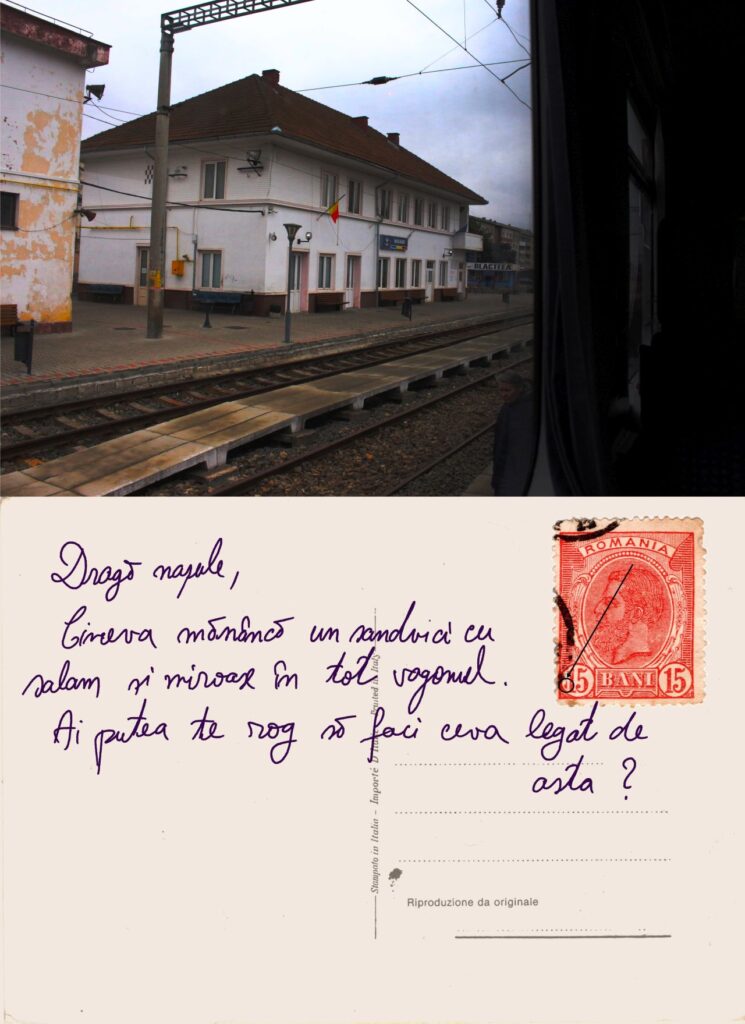 ROMANIA
15 BANI 15
Dragă nașule,
Cineva mănâncă un sandvici cu
salam și miroase în tot vagonul.
Ai putea te rog să faci ceva legat de
asta ?
Stampato in Italia - Importé D'Italie - Printed in Italy
Riproduzione da originale